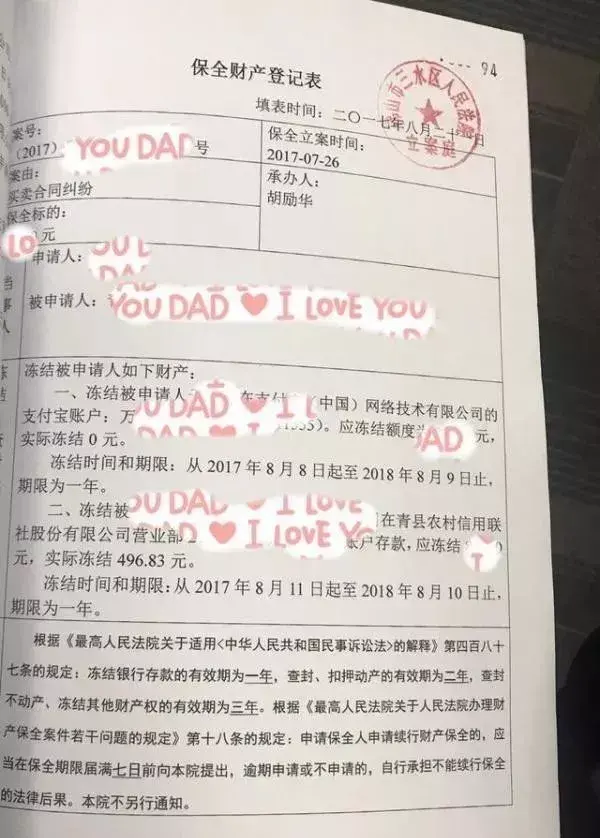 94
保全财产登记表
佛山市三水区人民法院
立案庭
填表时间：二〇一七年八月二十 日
案号：
（2017） YOU DAD 号
保全立案时间：
2017-07-26
案由：
买卖合同纠纷
承办人：
胡励华
保全标的：
LO 元
申请人： OU DAD
被申请人： YOU DAD I LOVE YOU
冻结被申请人如下财产：
一、冻结被申请人 在支付 （中国）网络技术有限公司的
支付宝账户：万 OU DAD I L 1555）。应冻结额度 DAD 元，
实际冻结 0 元。
冻结时间和期限：从 2017 年 8 月 8 日起至 2018 年 8 月 9 日止，
期限为一年。
二、冻结被 YOU DAD I LOVE YO 在青县农村信用联
社股份有限公司营业部 账户存款，应冻结 0
元，实际冻结 496.83 元。
冻结时间和期限：从 2017 年 8 月 11 日起至 2018 年 8 月 10 日止，
期限为一年。
根据《最高人民法院关于适用<中华人民共和国民事诉讼法>的解释》第四百八十
七条的规定：冻结银行存款的有效期为一年，查封、扣押动产的有效期为二年，查封
不动产、冻结其他财产权的有效期为三年。根据《最高人民法院关于人民法院办理财
产保全案件若干问题的规定》第十八条的规定：申请保全人申请续行财产保全的，应
当在保全期限届满七日前向本院提出，逾期申请或不申请的，自行承担不能续行保全
的法律后果。本院不另行通知。